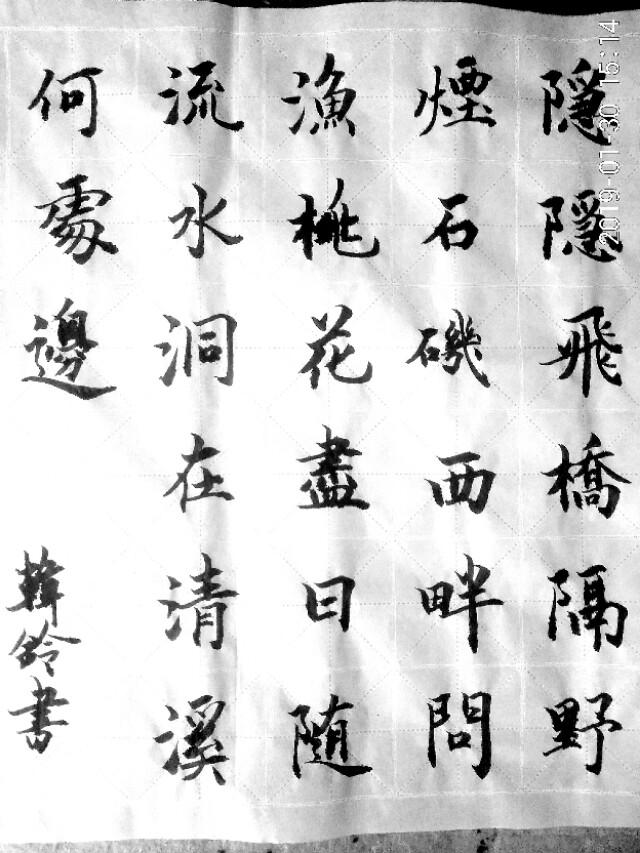 隱隱飛橋隔野
煙石磯西畔問
漁桃花盡日隨
流水洞在清溪
何處邊
韓鈴書
2019-01-30 15:14